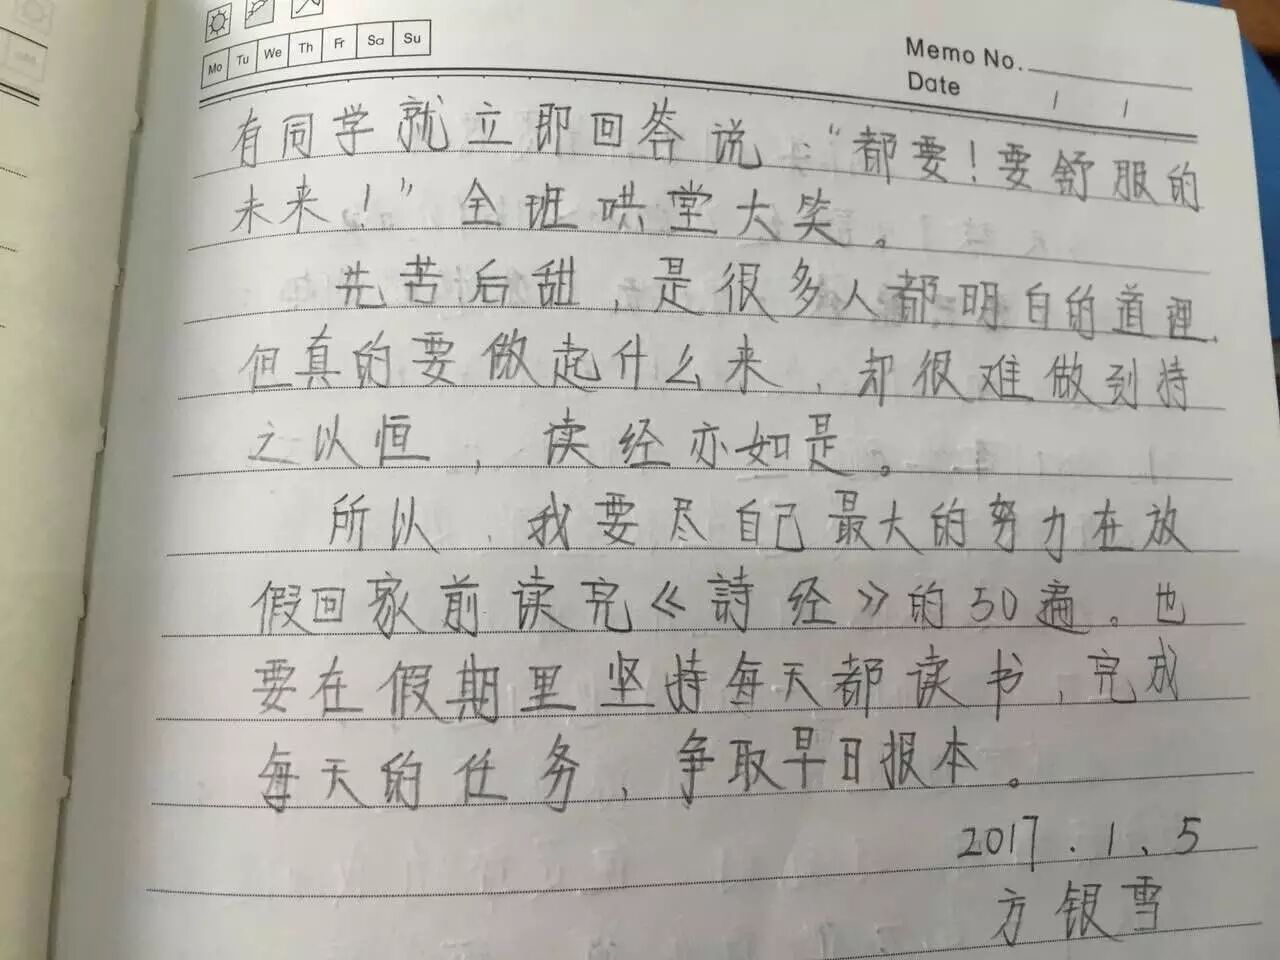 Mo Tu We Th Fr Sa Su
Memo No.
Date / /
有同学就立即回答说:“都要!要舒服的
未来!”全班哄堂大笑。
先苦后甜,是很多人都明白的道理,
但真的要做起什么来,却很难做到持
之以恒,读经亦如是。
所以,我要尽自己最大的努力在放
假回家前读完《詩经》的50遍。也
要在假期里坚持每天都读书,完成
每天的任务,争取早日报本。
2017.1.5
方银雪